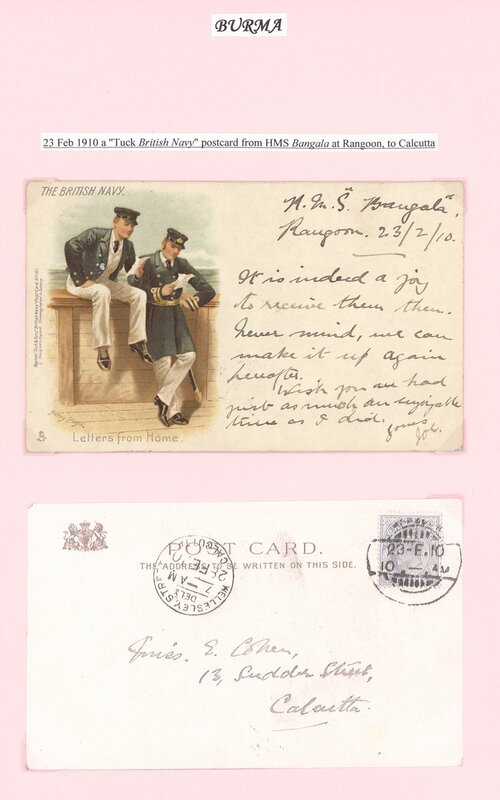 BURMA
23 Feb 1910 a "Tuck British Navy" postcard from HMS Bangala at Rangoon, to Calcutta
THE BRITISH NAVY.
H.M.S. "Bangala",
Rangoon. 23/2/10.
It is indeed a joy
to receive them then.
Never mind, we can
make it up again
hereafter.
Wish you an had
just as much an enjoyable
time as I did.
yours
Joe.
Letters from Home.
POST CARD.
THE ADDRESS TO BE WRITTEN ON THIS SIDE.
WELLESLEY STREET CALCUTTA
7 - AM
DELY
26 FE. 10
23-E.10
10
Miss. E. Cohen,
13, Sudder Street,
Calcutta.